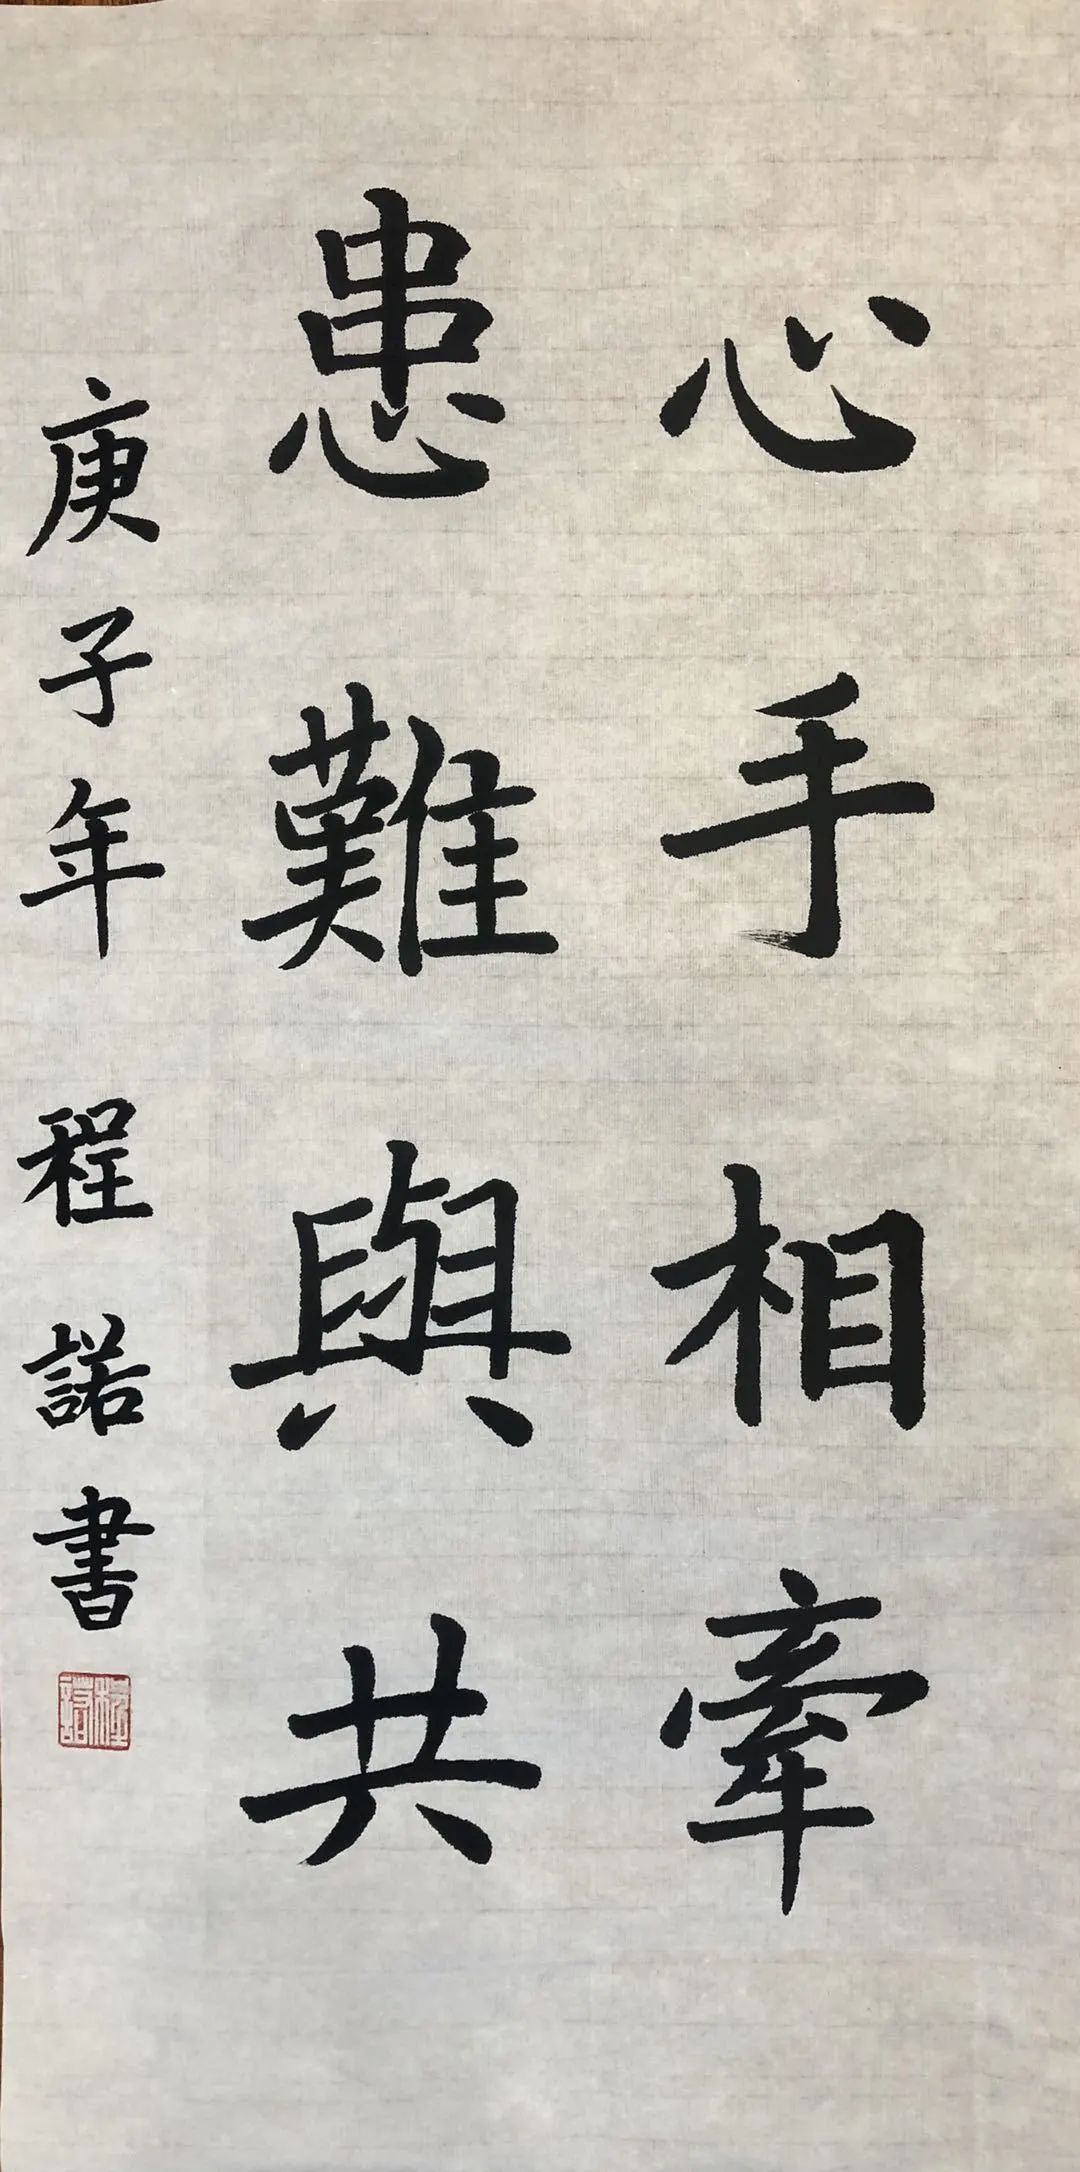 心手相牽
患難與共
庚子年 程諾書
程諾